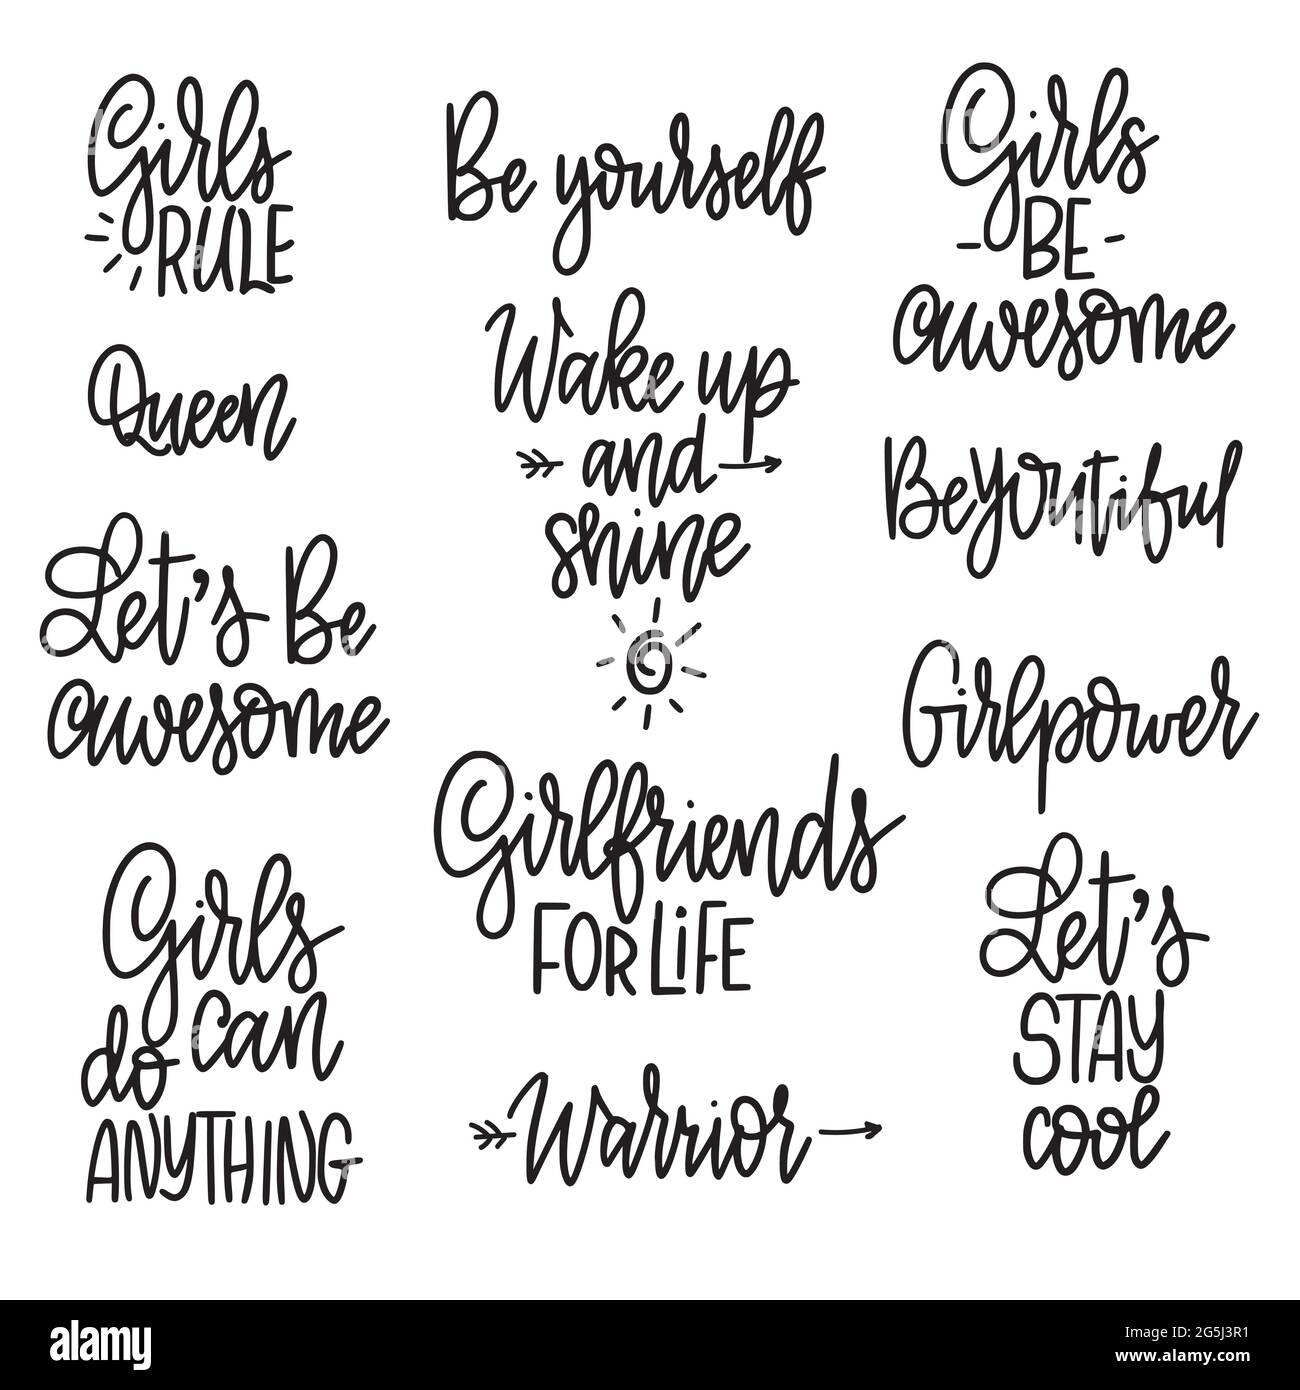 Girls
RULE
Queen
Let's Be
awesome
Girls
do can
ANYTHING
Be yourself
Wake up
and
shine
Girlfriends
FOR LiFE
Warrior
Girls
BE
awesome
BeYoutiful
Girlpower
Let's
STAY
cool
alamy
Image ID: 2G5J3R1
www.alamy.com